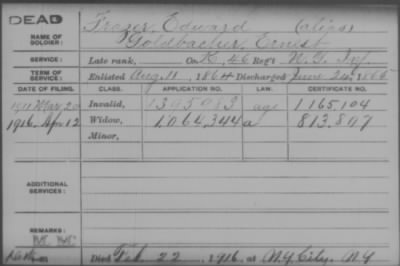 DEAD
Frazer, Edward (alias)
NAME OF SOLDIER: Goldbacher, Ernist
SERVICE: Late rank, Co. K, 46 Reg't N.Y. Inf.
TERM OF SERVICE: Enlisted Aug. 11, 1864 Discharged June 24, 1865
DATE OF FILING. CLASS. APPLICATION NO. LAW. CERTIFICATE NO.
1911 Mar 20 Invalid, 1395983 age 1165104
1916, Apr 12 Widow, 1,064,344 a 813,807
Minor,
ADDITIONAL SERVICES:
REMARKS:
Died Feb. 22, 1916, at N.Y. City, N.Y.